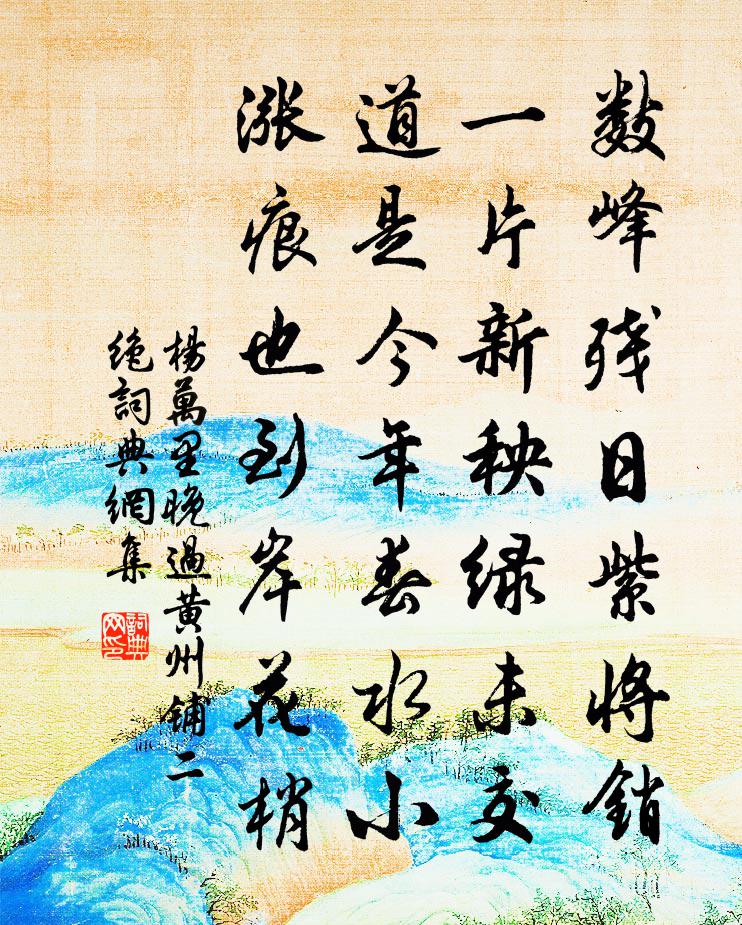 数峰残日紫将销
一片新秧緑未交
道是今年春水小
涨痕也到岸花梢
楊萬里晚過黄州铺二
绝詞典網集
詞典
网印